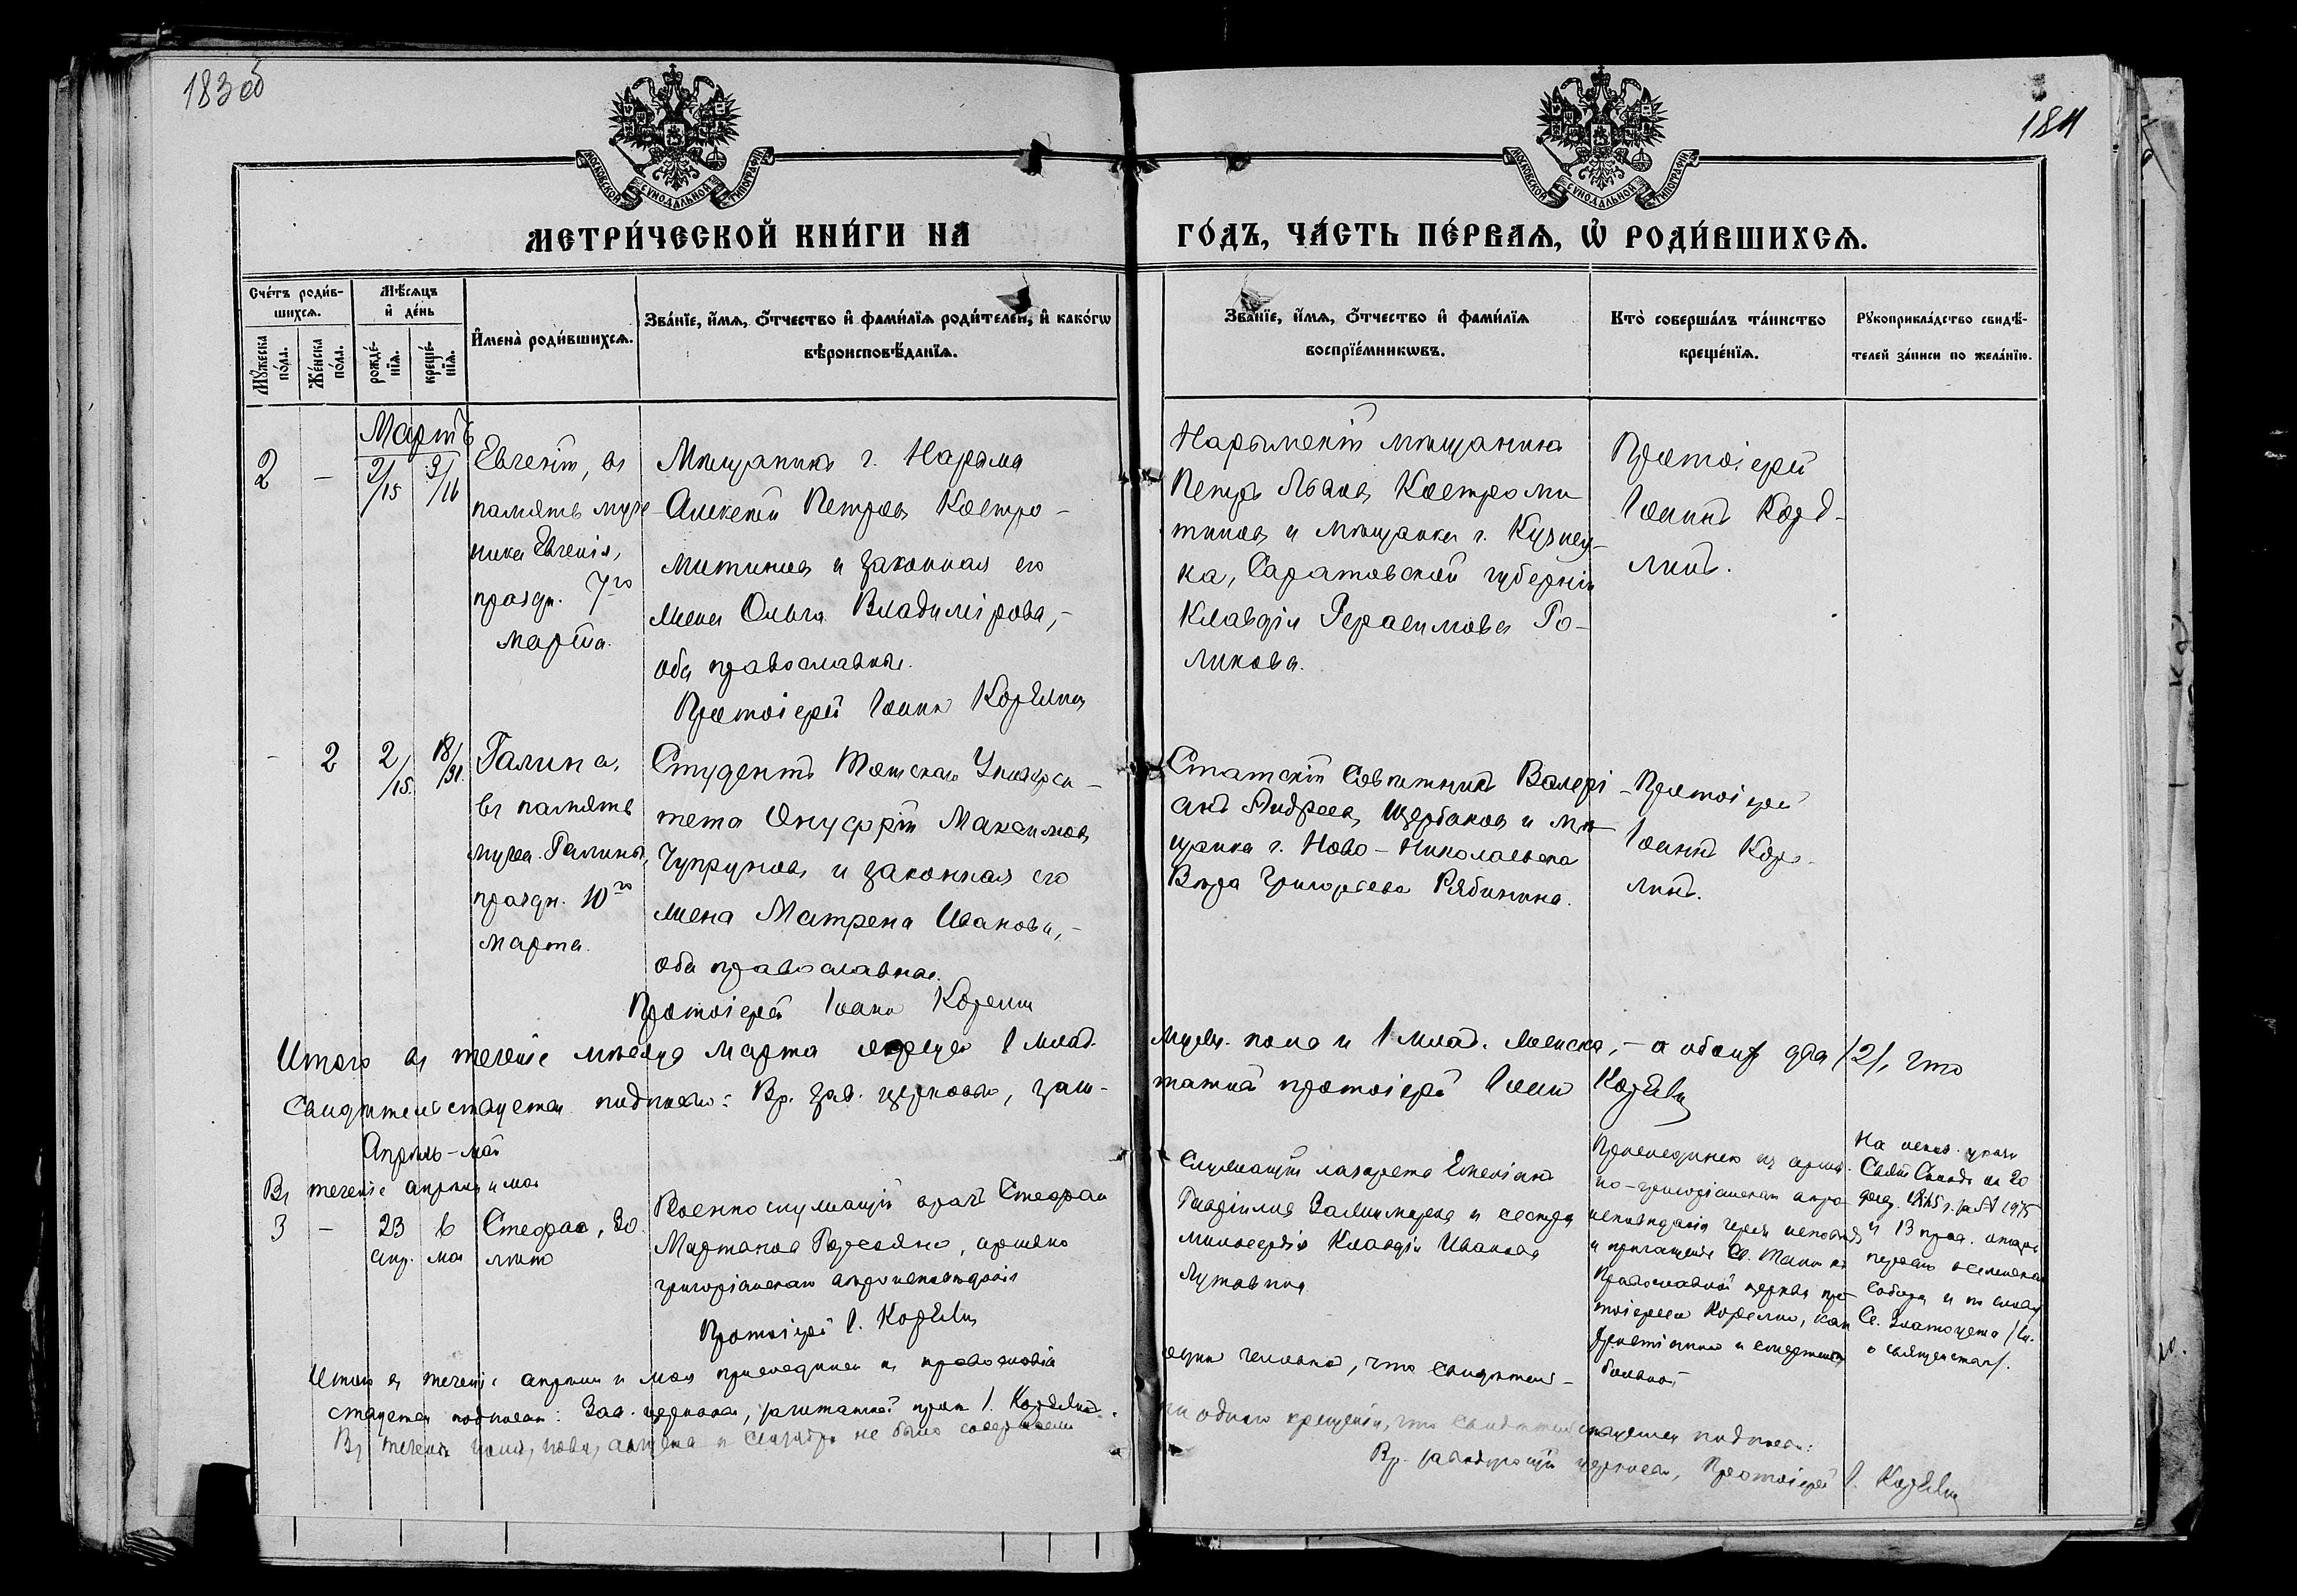 183 об
184
МОСКОВСКОЙ СУНОДАЛЬНОЙ ТИПОГРАФІИ
МОСКОВСКОЙ СУНОДАЛЬНОЙ ТИПОГРАФІИ
МЕТРИ́ЧЕСКОЙ КНИ́ГИ НА ГО́ДЪ, ЧА́СТЬ ПЕ́РВАѦ, Ѡ҆ РОДИ́ВШИХСѦ.
Сче́тъ роди́в-
шихсѧ.
Мꙋ́жеска по́ла.
Же́нска по́ла.
Мѣ́сѧцъ
и҆ де́нь
рожде́-
нїѧ.
креще́-
нїѧ.
И҆мена̀ роди́вшихсѧ.
Зва́нїе, и҆́мѧ, ѻ҆́тчество и҆ фами́лїѧ роди́телей, и҆ како́гѡ
вѣроисповѣ́данїѧ.
Зва́нїе, и҆́мѧ, ѻ҆́тчество и҆ фами́лїѧ
воспрїе́мникѡвъ.
Кто̀ соверша́лъ та́инство
креще́нїѧ.
Рꙋкоприкла́дство свидѣ́-
телей за́писи по жела́нїю.
Мартъ
2 — 2/15 3/16
Евгеній, въ
память муче
ника Евгенія,
праздн. 7го
марта.
Мѣщанинъ г. Нарыма
Алексѣй Петровъ Костро-
митиновъ и законная его
жена Ольга Владимірова,-
оба православные.
Протоіерей Іоаннъ Корелинъ
Нарымскій мѣщанинъ
Петръ Львовъ Костроми
тиновъ и мѣщанка г. Кузнец-
ка, Саратовской губерніи
Клавдія Герасимова Го-
ликова.
Протоіерей
Іоаннъ Коре-
линъ.
- 2 2/15. 18/31.
Галина,
въ память
мучен. Галины,
праздн. 10го
марта.
Студентъ Томскаго Универси-
тета Онуфрій Максимовъ
Чупруновъ и законная его
жена Матрена Иванова,-
оба православные.
Протоіерей Іоаннъ Корелинъ
Статскій Совѣтникъ Валері-
анъ Андреевъ Щербаковъ и мѣ-
щанка г. Ново-Николаевска
Вѣра Григорьева Рябинина.
Протоіерей
Іоаннъ Коре-
линъ.
Итого въ теченіе мѣсяца марта 1 млад. мужск. пола и 1 млад. женска, - а обоихъ два /2/, что
свидѣтельствуется подписью: Вр. зав. церковью, заш-
татный протоіерей Іоаннъ Корелинъ
Апрѣль-май
Въ теченіе апрѣля и мая
3 — 23 апр. 6 мая
Стефанъ, 30
лѣтъ
Военнослужащій врачъ Стефанъ
армяно
григоріанскаго вѣроисповѣданія
Протоіерей І. Корелинъ
Служащій лазарета
и сестра
милосердія Клавдія Иванова
Присоединенъ изъ армя-
но-григоріанскаго вѣро-
исповѣданія чрезъ исповѣдь
и пріобщеніе Св. Таинъ къ
Православной церкви про-
тоіереемъ Корелинымъ, какъ
больной
На основ. указа
Свят. Синода отъ 20
и 13 прав.
перваго вселенскаго
Собора и по слову
Св. Златоуста
о священствѣ/.
Итого въ теченіе апрѣля и мая присоединенъ къ православію одинъ человѣкъ, что свидѣтель-
ствуется подписью: Зав. церковью, заштатный прот. І. Корелинъ.
Въ теченіе іюня, іюля, августа и сентября не было совершено ни одного крещенія, что свидѣтельствуется подписью:
Вр. завѣдующій церковью, Протоіерей І. Корелинъ